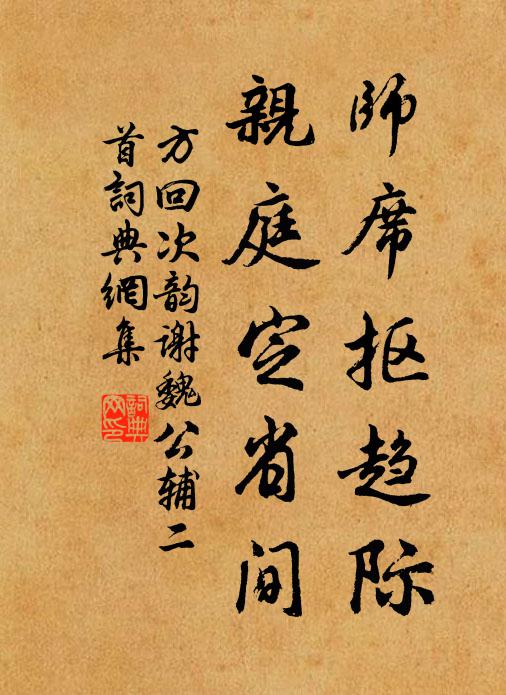 師席抠趋际
親庭定省间
方回次韵谢魏公辅二
首詞典網集
詞典
网印